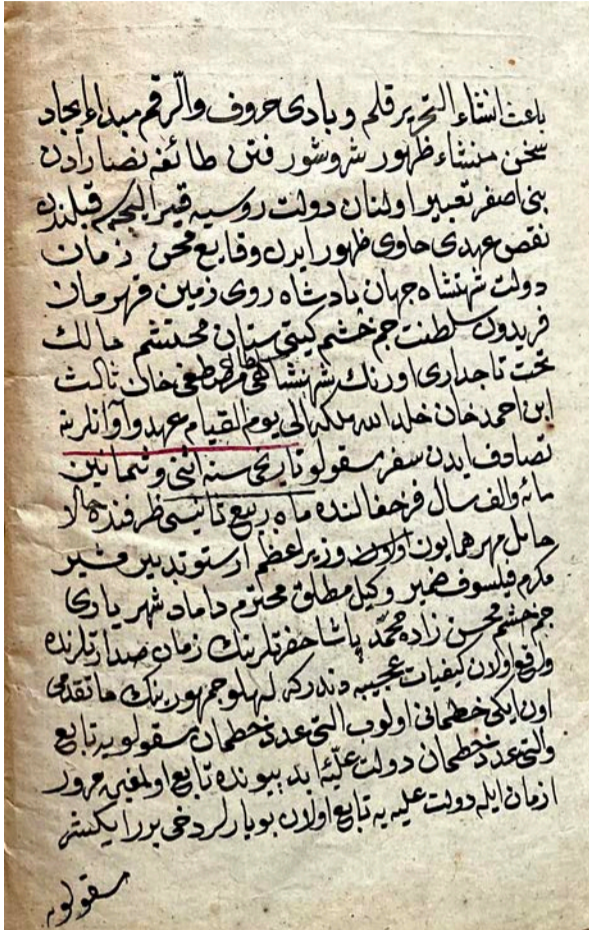 باعث انشاء التحریر قلم و بادی حروف والرقم مبداء ایجاد
سخن منشاء ظهور شر و شور فتن طائفهٔ نصارادن
بنی اصفر تعبیر اولنان دولت روسیه قبلندن
نقض عهدی حاوی ظهور ایدن وقایع محن زمان
دولت شهنشاه جهان پادشاه روی زمین قهرمان
فریدون سلطنت جم حشم کیتی ستان محتشم مالك
تحت تاجداری اورنك شهنشاهی مصطفی خان ثالث
ابن احمد خان خلد الله ملکه الی یوم القیام عهد و آوانلرنه
تصادف ایدن سفر تاریخی سنه اثنی و ثمانین
مائه والف سال ماه ربیع ظرفنده حالا
حامل مهر همایون اولان وزیر اعظم ارستو تدبیر مشیر
مکرم فیلسوف ضمیر وکیل مطلق محترم داماد شهریاری
جم حشم محسن زاده محمد پاشا حضرتلرینك زمان صدارتلرنده
واقع اولان کیفیات عجیبه دندرکه جمهورینك ماتقدمی
اون ایکی خطمانی اولوب التی عدد خطمان سقولویه تابع
والتی عدد خطمان دولت علیّهٔ ابد پیونده تابع اولمغین مرور
ازمان ایله دولت علیه یه تابع اولان بویارلر دخی برر ایکیشر
سقولویه